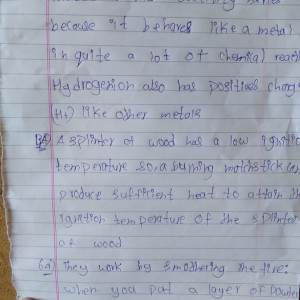 because it behaves like a metal
in quite a lot of chemical reac
Hydrogenion also has positives charge
(H+) like other metals
A splinter of wood has a low ignitio
temperature so, a burning matchstick can
produce sufficient heat to attain th
ignition temperature of the splinter
of wood
6a) They work by smothering the fire:
when you put a layer of powder